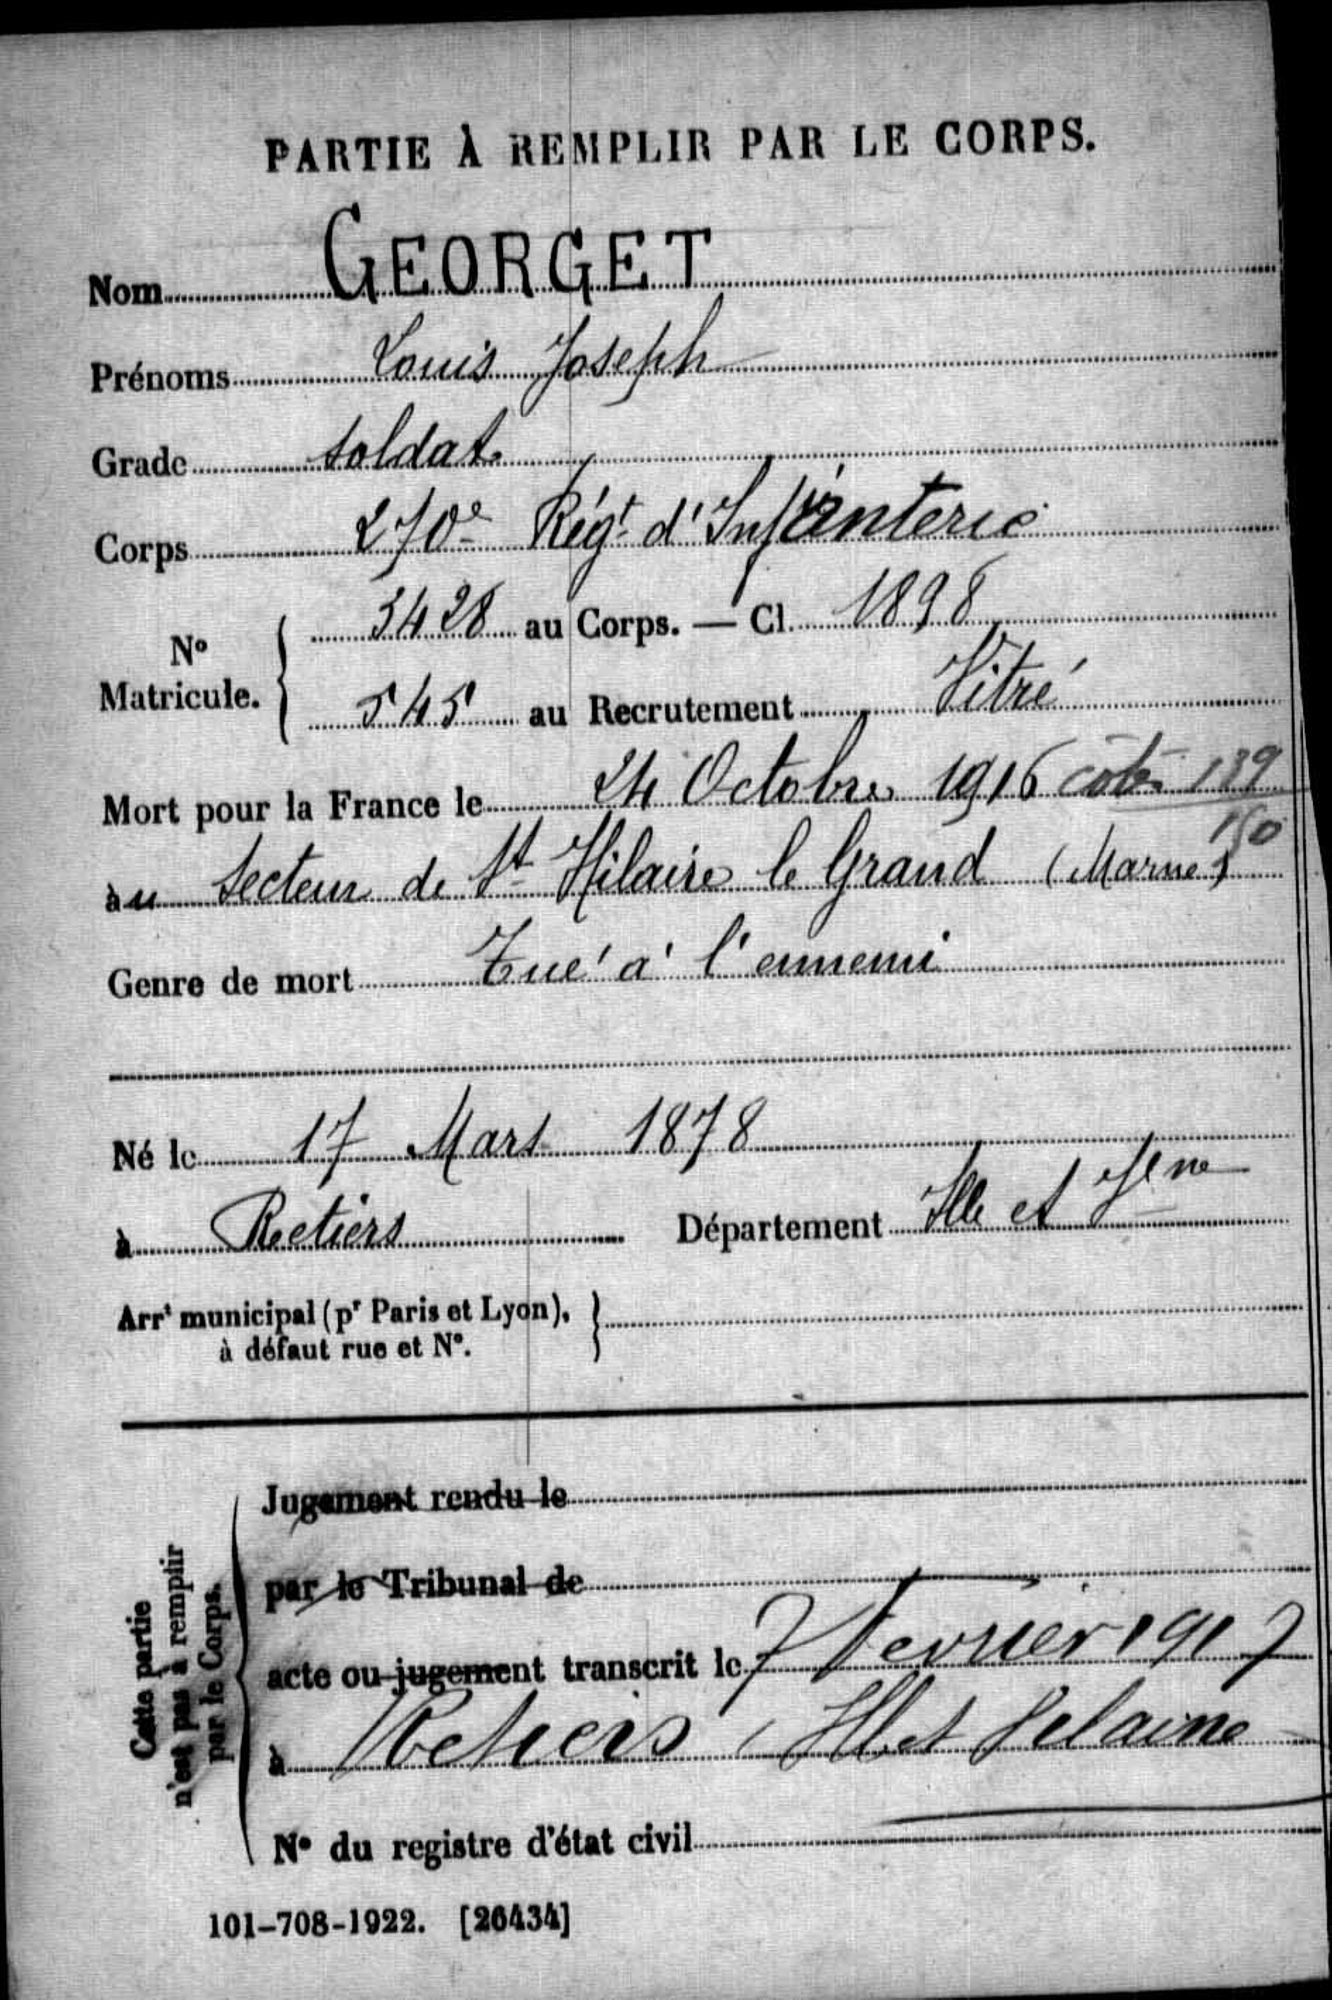 PARTIE À REMPLIR PAR LE CORPS.
Nom GEORGET
Prénoms Louis Joseph
Grade soldat
Corps 270e Régt d'Infanterie
N° Matricule. { 3428 au Corps. — Cl. 1898
545 au Recrutement Vitré
Mort pour la France le 24 Octobre 1916 côte 139
150
au Secteur de St Hilaire le Grand (Marne)
Genre de mort Tué à l'ennemi
Né le 17 Mars 1878
à Retiers Département Ille et Vne
Arrt municipal (pr Paris et Lyon), }
à défaut rue et N°.
Cette partie
n'est pas à remplir
par le Corps.
Jugement rendu le
par le Tribunal de
acte ou jugement transcrit le 7 Fevrier 1917
à Retiers Ille et Vilaine
N° du registre d'état civil
101-708-1922. [26434]